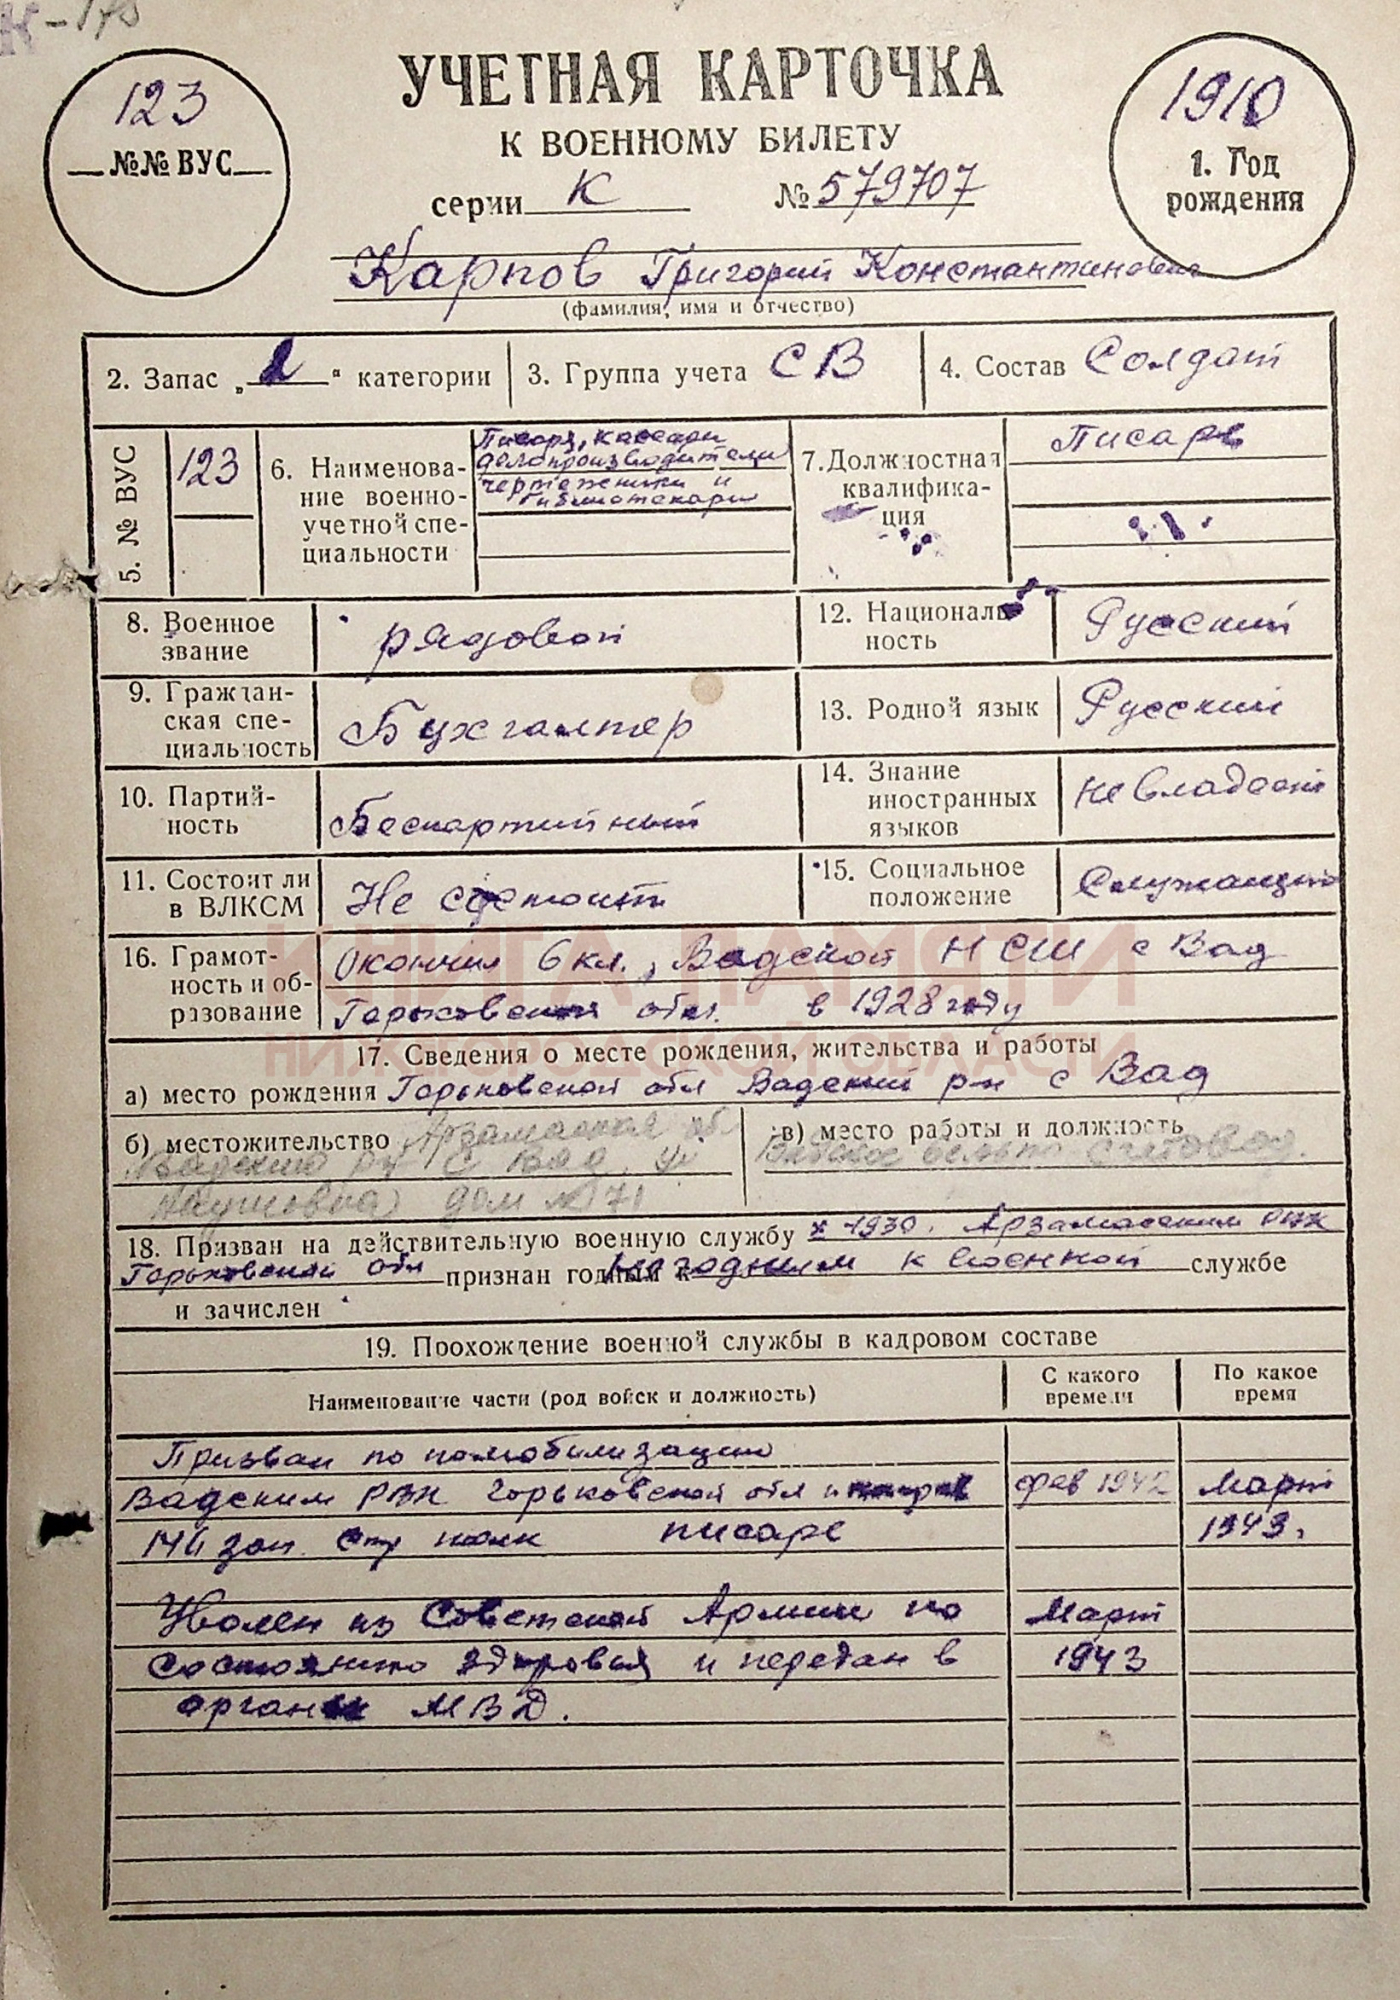 УЧЕТНАЯ КАРТОЧКА
К ВОЕННОМУ БИЛЕТУ
серии К № 579707
123
№№ ВУС
1910
1. Год
рождения
Карпов Григорий Константинович
(фамилия, имя и отчество)
2. Запас „ 2 “ категории
3. Группа учета СВ
4. Состав Солдат
5. № ВУС
123
6. Наименова-
ние военно-
учетной спе-
циальности
Писаря, кассиры
делопроизводители
чертежники и
библиотекари
7. Должностная
квалифика-
ция
Писарь
8. Военное
звание
рядовой
12. Националь-
ность
Русский
9. Граждан-
ская спе-
циальность
Бухгалтер
13. Родной язык
Русский
10. Партий-
ность
Беспартийный
14. Знание
иностранных
языков
не владеет
11. Состоит ли
в ВЛКСМ
Не состоит
15. Социальное
положение
Служащий
16. Грамот-
ность и об-
разование
Окончил 6 кл., Вадской НСШ с Вад
Горьковской обл. в 1928 году
КНИГА ПАМЯТИ
НИЖЕГОРОДСКОЙ ОБЛАСТИ
17. Сведения о месте рождения, жительства и работы
а) место рождения Горьковской обл Вадский р-н с Вад
б) местожительство Арзамаская обл
Вадский р-н с Вад ул
дом № 71
в) место работы и должность
Вадское счетовод.
18. Призван на действительную военную службу х -1930. Арзамасским РВК
Горьковской обл признан годным к негодным к военной службе
и зачислен
19. Прохождение военной службы в кадровом составе
Наименование части (род войск и должность)
С какого
времени
По какое
время
Призван по мобилизации
Вадским РВК Горьковской обл фев 1942 Март
146 зап. стр полк писарь 1943.
Уволен из Советской Армии по Март
состоянию здоровья и передан в 1943
органы МВД.